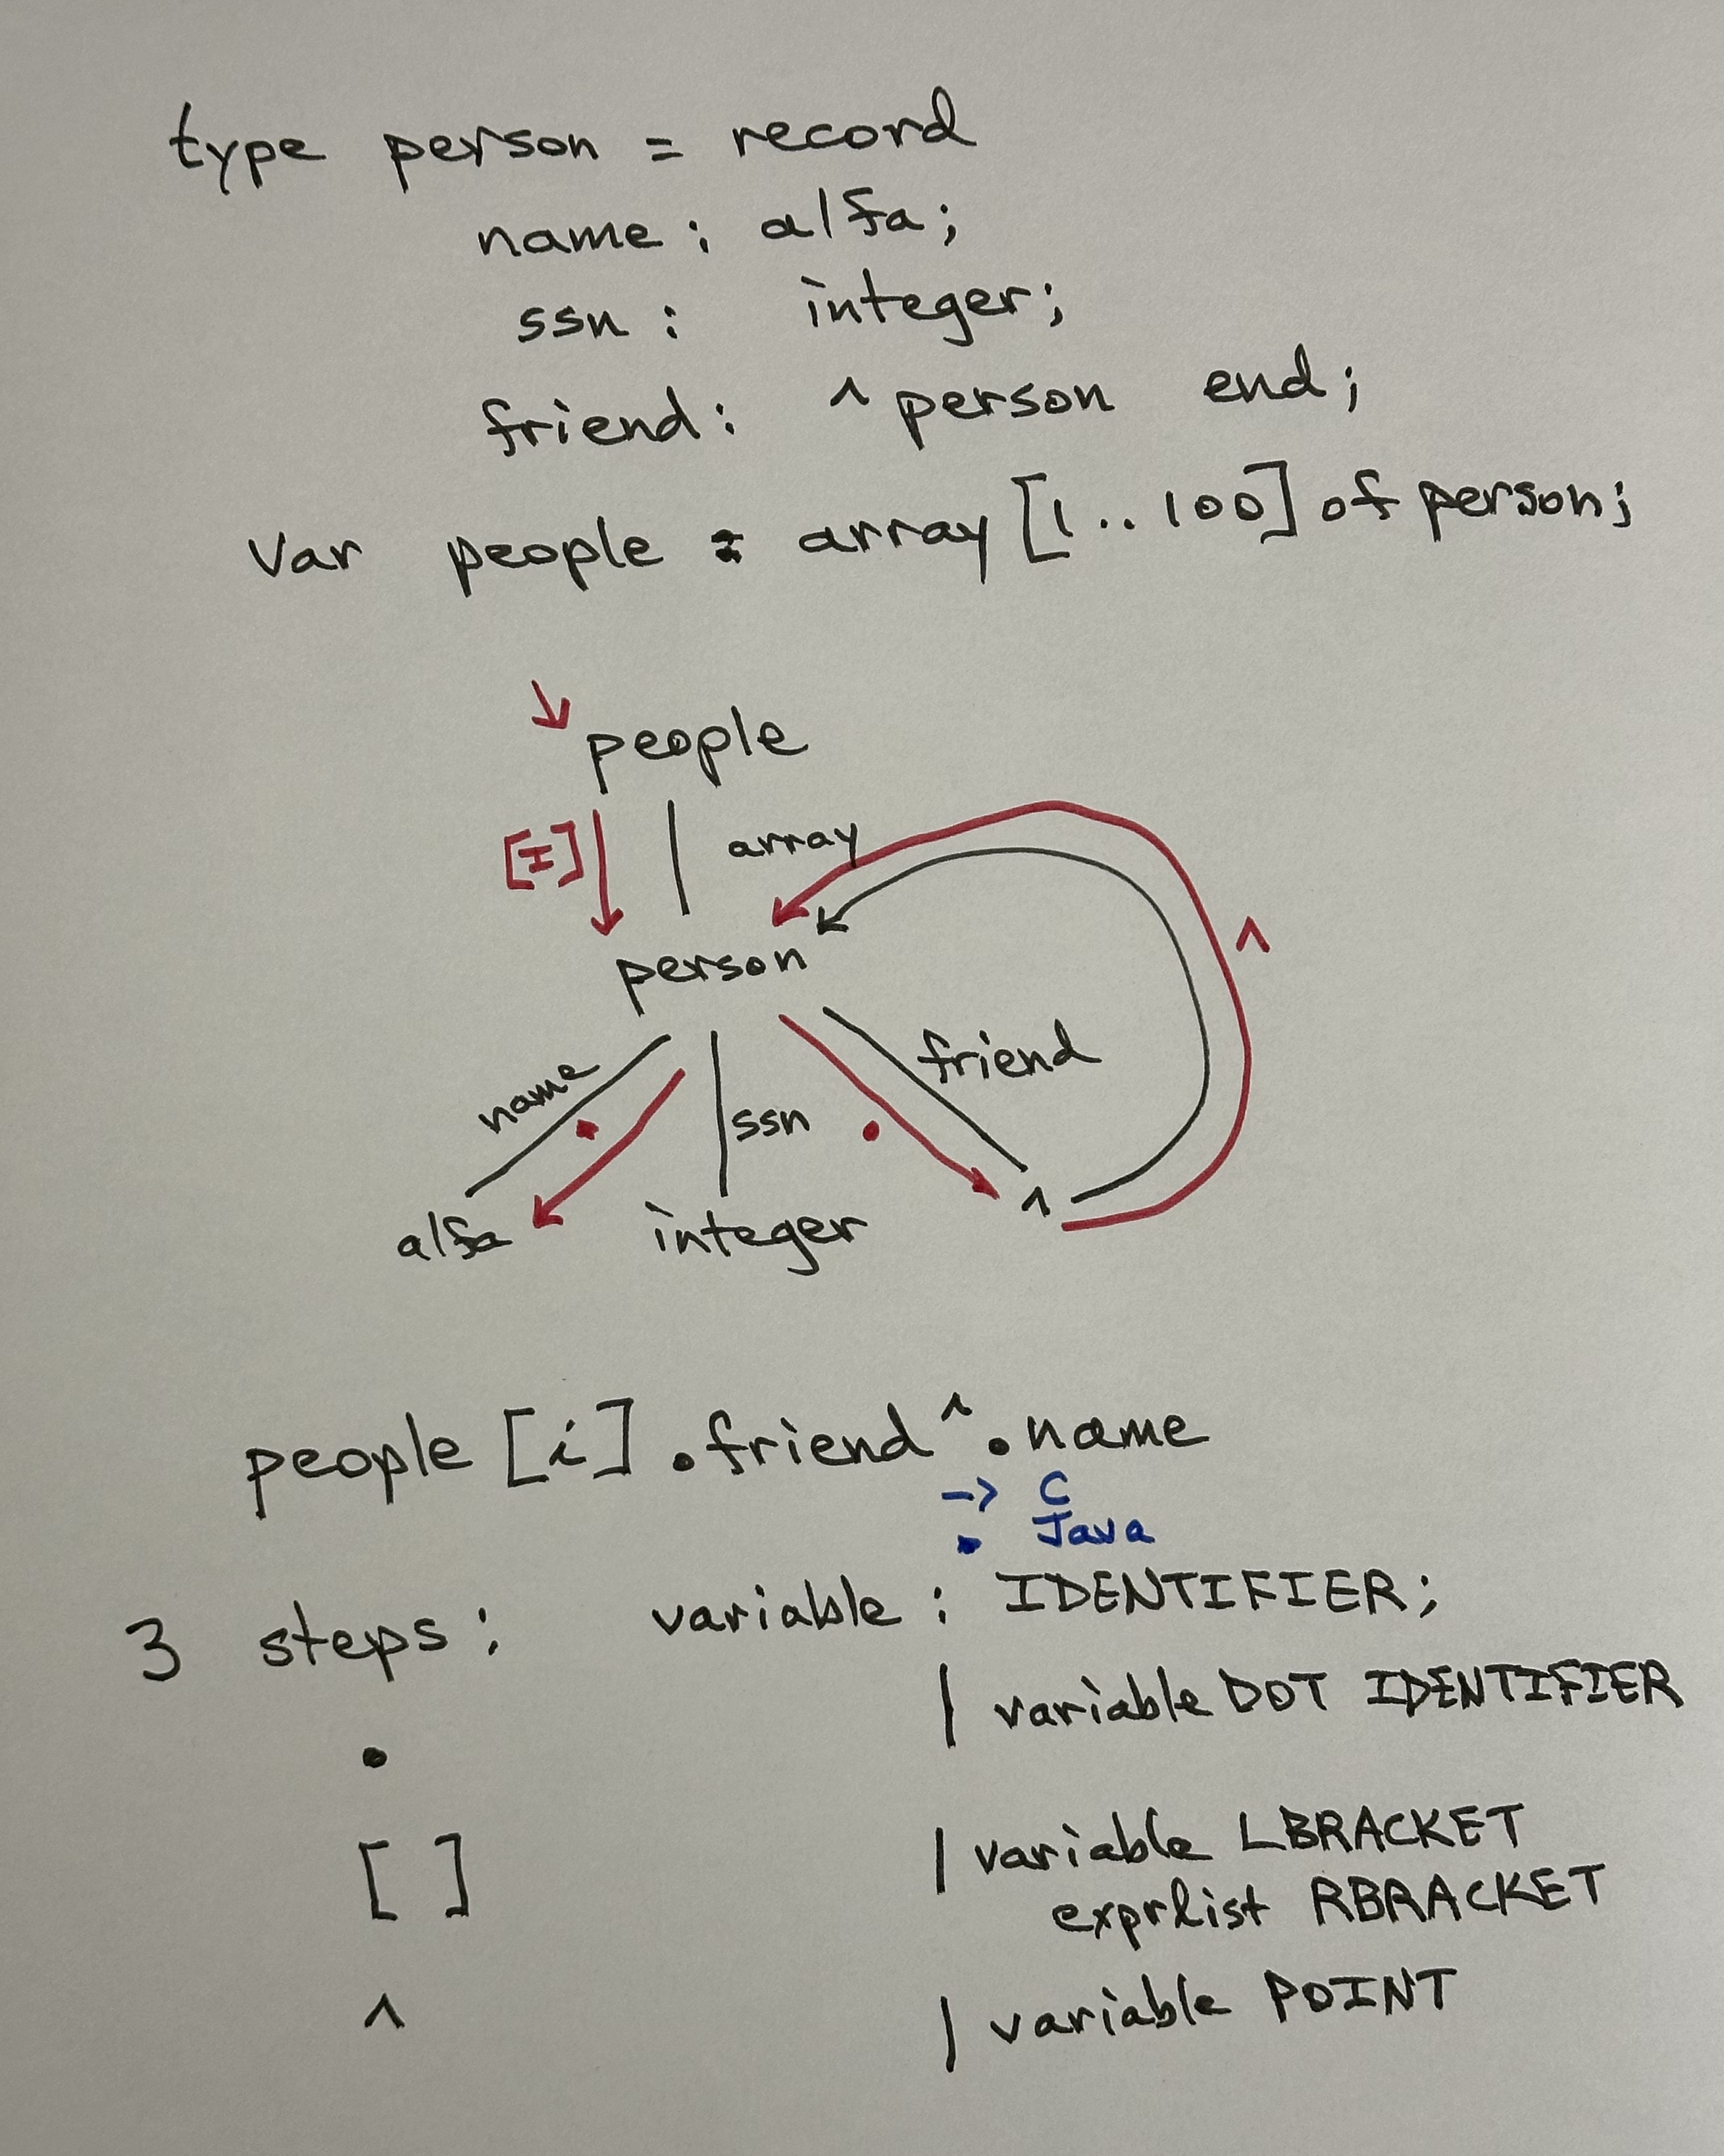 type person = record
name : alfa;
ssn : integer;
friend : ^ person end;
var people : array [1..100] of person;
people
[I]
array
^
person
name
ssn
friend
alfa
integer
^
people [i] .friend^.name
-> C
. Java
3 steps : variable : IDENTIFIER;
| variable DOT IDENTIFIER
.
| variable LBRACKET
[ ]
exprlist RBRACKET
^
| variable POINT